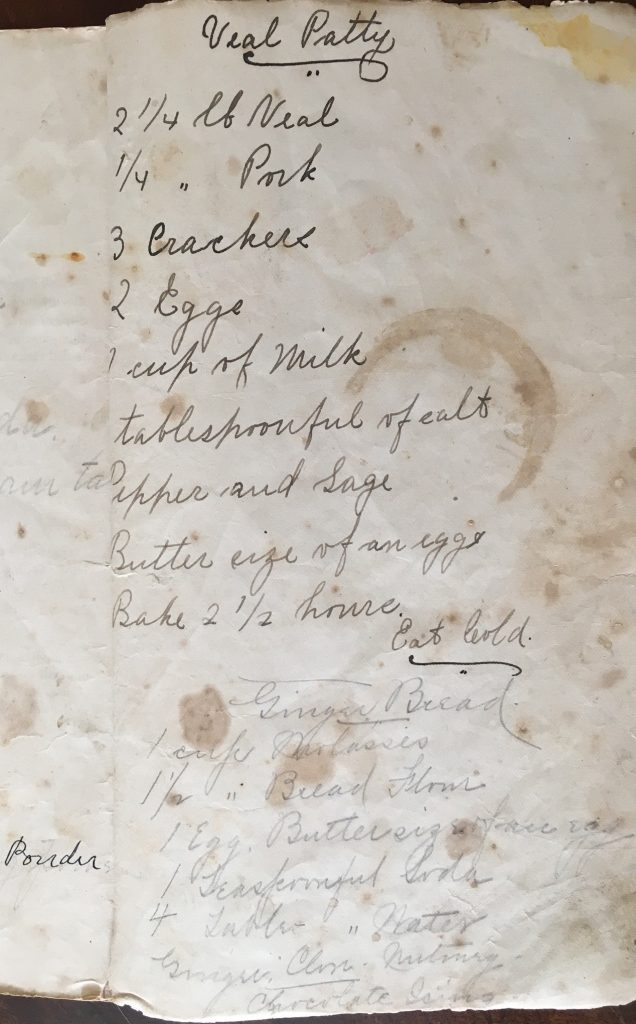 Veal Patty
2 1/4 lb Veal
1/4 " Pork
3 Crackers
2 Eggs
1 cup of Milk
tablespoonful of salt
Pepper and Sage
Butter size of an egg
Bake 2 1/2 hours.
Eat Cold.
Ginger Bread
1 cup Molasses
1 1/2 " Bread Flour
1 Egg. Butter size of an egg
1 Teaspoonful Soda
4 Table- " Water
Ginger, Clove. Nutmeg.
Chocolate Icing
Powder